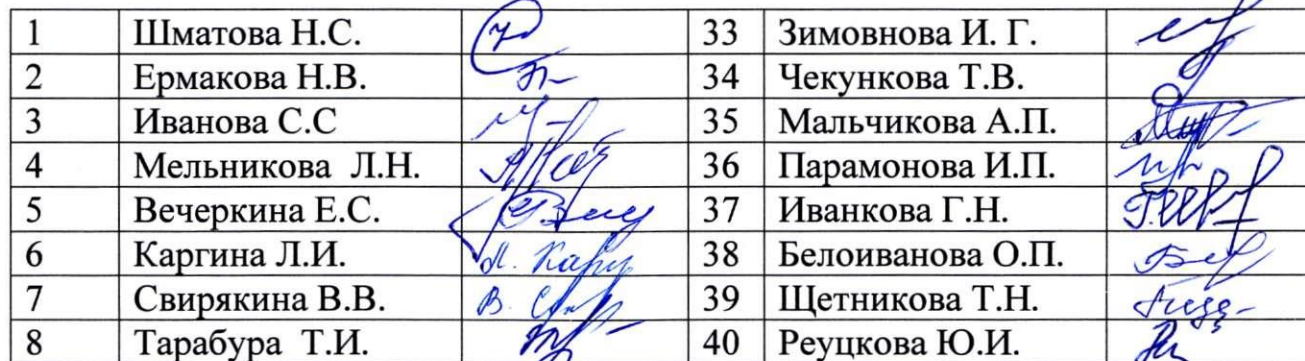 1 Шматова Н.С. 33 Зимовнова И. Г.
2 Ермакова Н.В. 34 Чекункова Т.В.
3 Иванова С.С 35 Мальчикова А.П.
4 Мельникова Л.Н. 36 Парамонова И.П.
5 Вечеркина Е.С. 37 Иванкова Г.Н.
6 Каргина Л.И. 38 Белоиванова О.П.
7 Свирякина В.В. 39 Щетникова Т.Н.
8 Тарабура Т.И. 40 Реуцкова Ю.И.